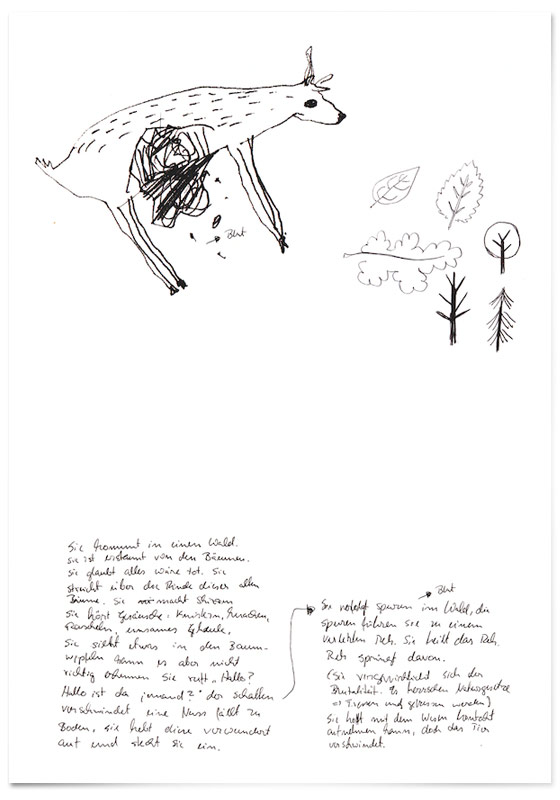 Blut
Sie kommt in einen Wald.
sie ist erstaunt von den Bäumen.
Sie glaubt alles wäre tot. Sie
streicht über die Rinde dieser alten
Bäume. Sie macht Skizzen
Sie hört Geräusche: Knistern, Knacken,
Rascheln, einsames Geheule,
Sie sieht etwas in den Baum-
wipfeln kann es aber nicht
richtig erkennen Sie ruft „Hallo?
Hallo ist da jemand?" der Schallen
verschwindet eine Nuss fällt zu
Boden, sie hebt diese verwundert
auf und steckt sie ein.
Blut
Sie verfolgt spuren im Wald, die
spuren führen sie zu einem
verletzten Reh. Sie heilt das Reh.
Reh springt davon.
(Sie verschwindet sich der
Brutalität. Es herrschen Naturgesetze
=> Fressen und gefressen werden)
Sie hofft mit dem Wesen Kontakt
aufnehmen kann, doch das Tier
verschwindet.